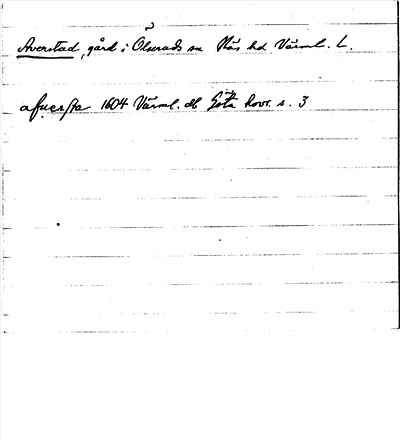 Averstad, gård i Ölseruds sn Näs hd Värml. L.
afuersta 1604 Värml. hl. Göta hovr. s. 3